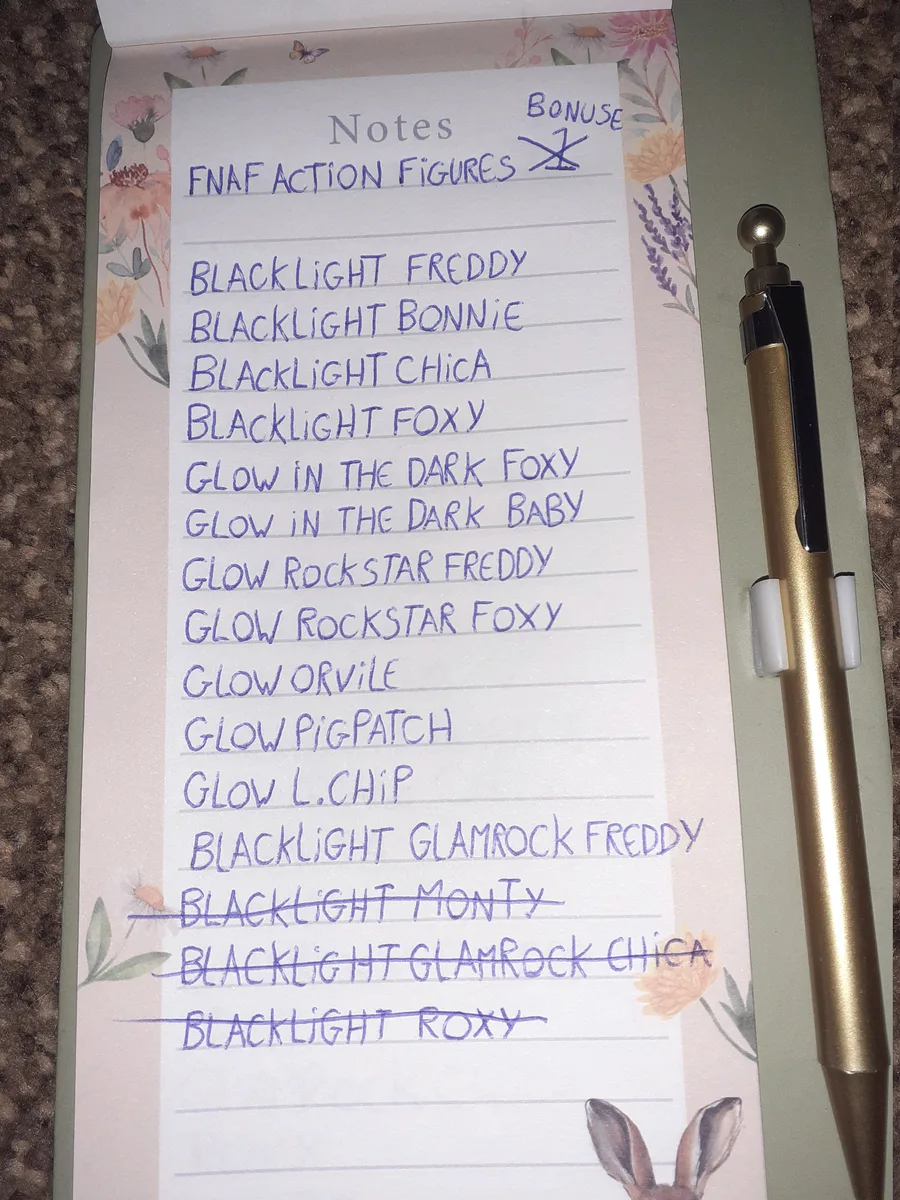 BONUSE
Notes
FNAF ACTION FIGURES 1
BLACKLIGHT FREDDY
BLACKLIGHT BONNIE
BLACKLIGHT CHICA
BLACKLIGHT FOXY
GLOW IN THE DARK FOXY
GLOW IN THE DARK BABY
GLOW ROCKSTAR FREDDY
GLOW ROCKSTAR FOXY
GLOW ORVILE
GLOW PIGPATCH
GLOW L.CHIP
BLACKLIGHT GLAMROCK FREDDY
BLACKLIGHT MONTY
BLACKLIGHT GLAMROCK CHICA
BLACKLIGHT ROXY